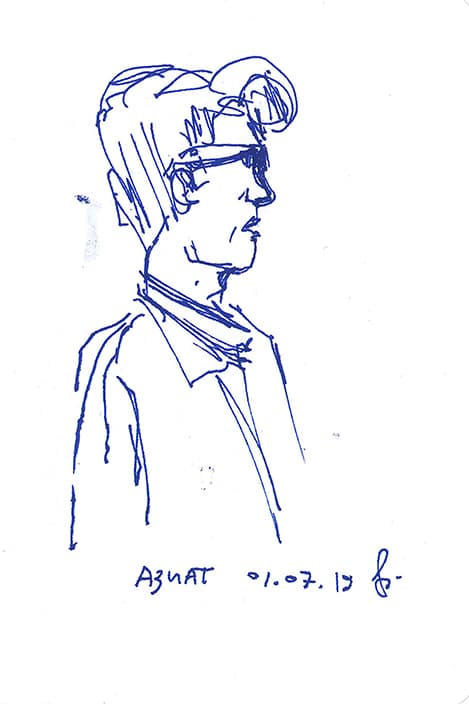 АЗИАТ 01.07.19